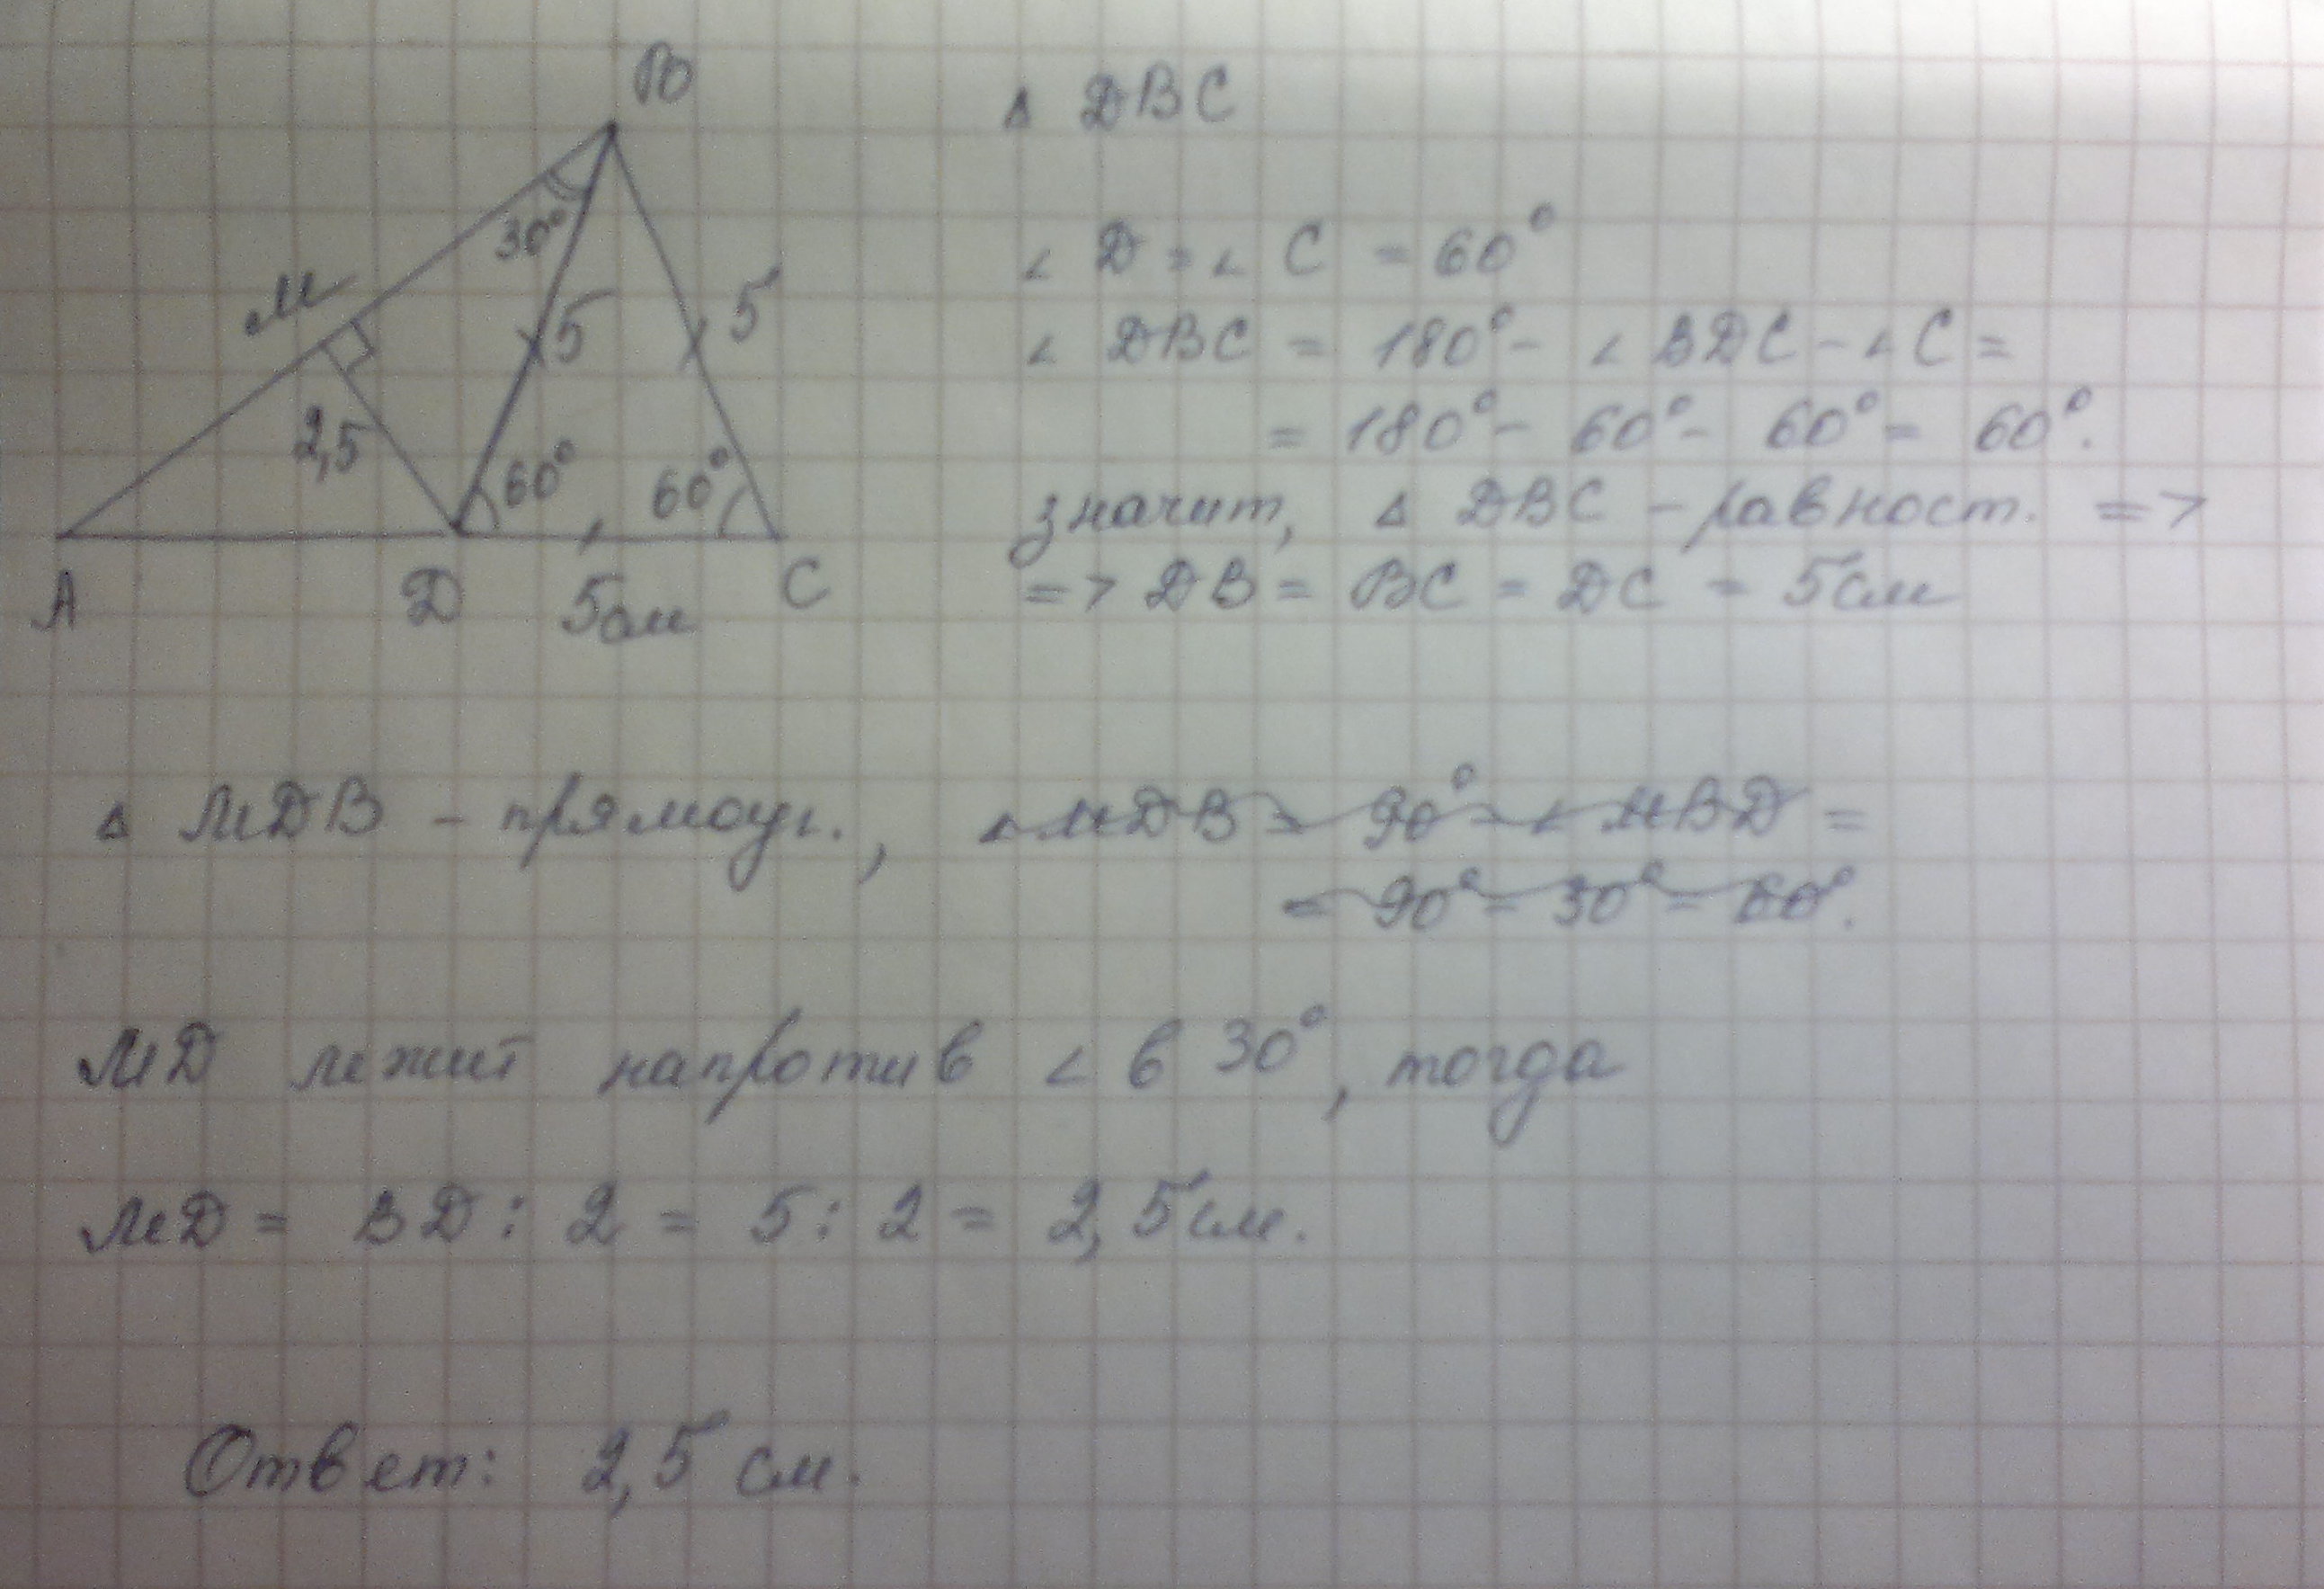 В
30°
М
5
5
2,5
60°
60°
А
D
5см
С
Δ DBC
∠ D = ∠ C = 60°
∠ DBC = 180° - ∠ BDC - ∠ C =
= 180° - 60° - 60° = 60°.
значит, Δ DBC - равност. =>
=> DB = BC = DC = 5см
Δ MDB - прямоуг., ∠ MDB = 90° - ∠ MBD =
= 90° - 30° = 60°.
MD лежит напротив ∠ в 30°, тогда
MD = BD : 2 = 5 : 2 = 2,5см.
Ответ: 2,5 см.